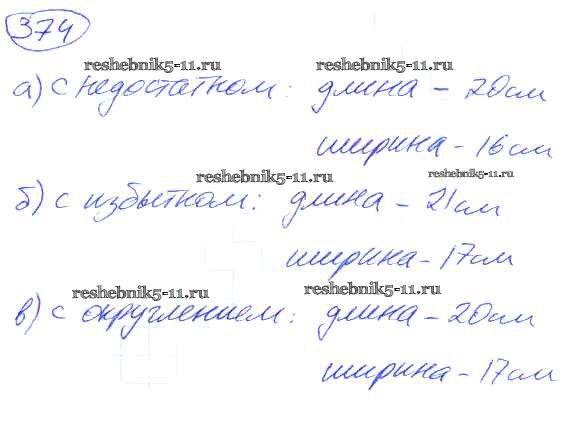 374
reshebnik5-11.ru reshebnik5-11.ru
а) с недостатком: длина - 20см
ширина - 16см
reshebnik5-11.ru reshebnik5-11.ru
б) с избытком: длина - 21см
ширина - 17см
reshebnik5-11.ru reshebnik5-11.ru
в) с округлением: длина - 20см
ширина - 17см